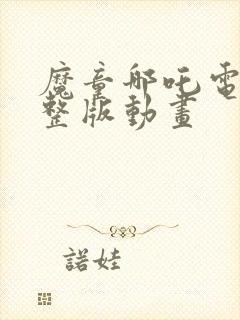 魔童哪吒電
整版動畫
諾娃